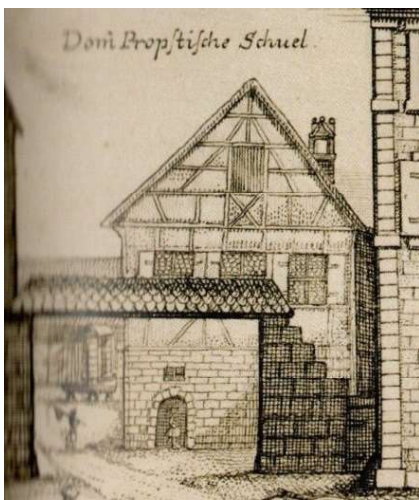 Dom̃ Propſtiſche Schuel.